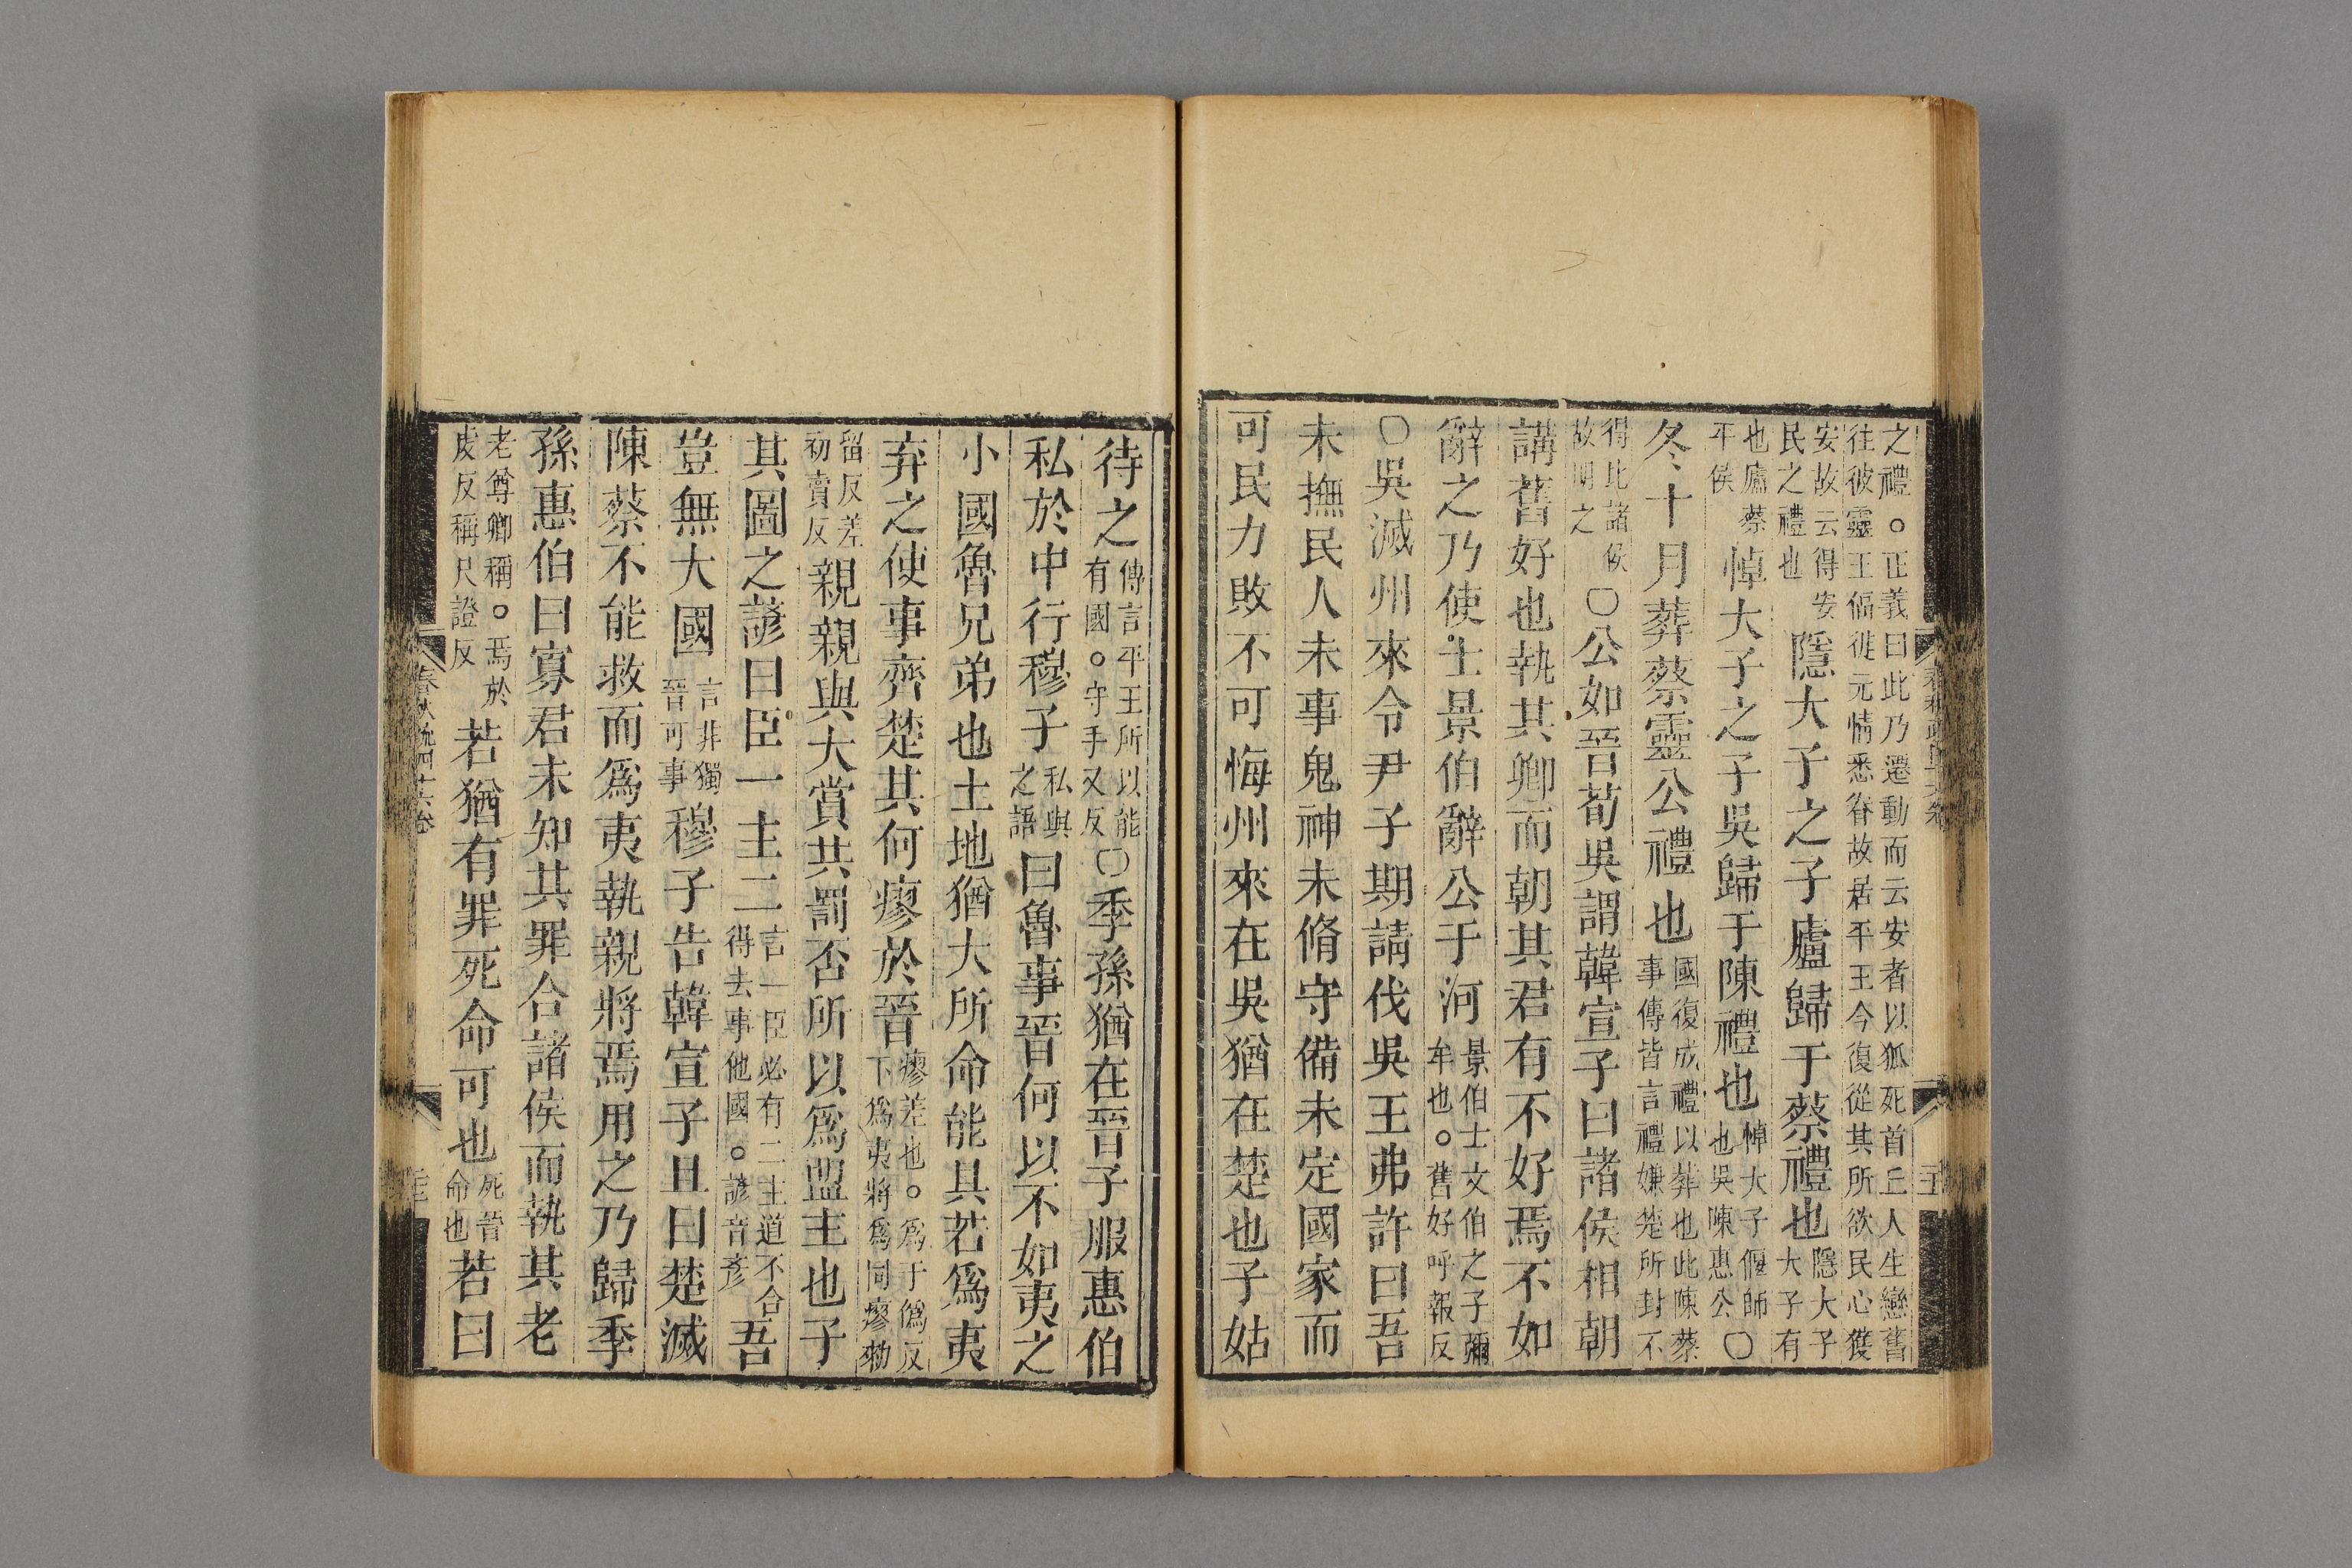 之禮○正義曰此乃遷動而云安者以狐死首丘人生戀舊
往彼靈王偪徙元情悉眷故居平王今復從其所欲民心獲
安故云得安
民之禮也
隱大子之子廬歸于蔡禮也
隱大子
大子有
也廬蔡
平侯
悼大子之子吳歸于陳禮也
悼大子偃師
也吳陳惠公
○
冬十月葬蔡靈公禮也
國復成禮以葬也此陳蔡
事傳皆言禮嫌楚所封不
得比諸侯
故明之
○公如晉荀吳謂韓宣子曰諸侯相朝
講舊好也執其卿而朝其君有不好焉不如
辭之乃使士景伯辭公于河
景伯士文伯之子彌
牟也○舊好呼報反
○吳滅州來令尹子期請伐吳王弗許曰吾
未撫民人未事鬼神未脩守備未定國家而
可民力敗不可悔州來在吳猶在楚也子姑
待之
傳言平王所以能
有國○守手又反
○季孫猶在晉子服惠伯
私於中行穆子
私與
之語
曰魯事晉何以不如夷之
小國魯兄弟也土地猶大所命能具若爲夷
弃之使事齊楚其何瘳於晉
瘳差也○爲于僞反
下爲夷將爲同瘳勑
留反差
初賣反
親親與大賞共罰否所以爲盟主也子
其圖之諺曰臣一主二
言一臣必有二主道不合
得去事他國○諺音彥
吾
豈無大國
言非獨
晉可事
穆子告韓宣子且曰楚滅
陳蔡不能救而爲夷執親將焉用之乃歸季
孫惠伯曰寡君未知其罪合諸侯而執其老
老尊卿稱○焉於
虔反稱尺證反
若猶有罪死命可也
死晉
命也
若曰